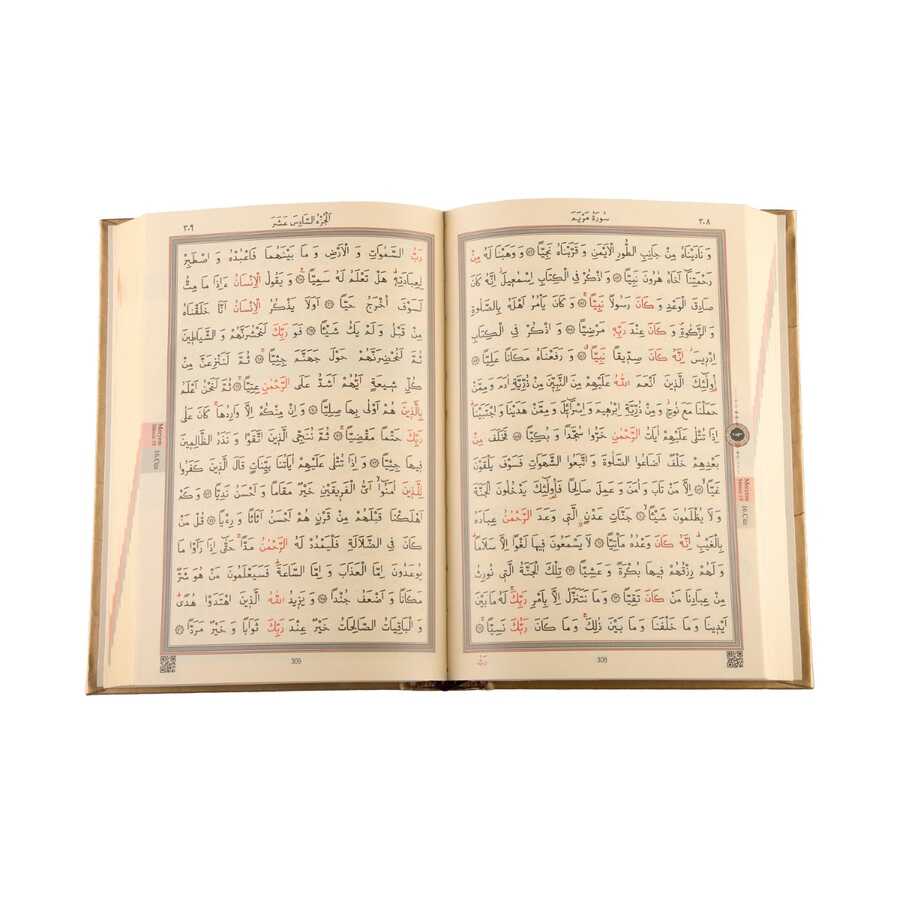 سُورَةُ مَرْيَمَ ٣٠٨
وَ نَادَيْنَاهُ مِنْ جَانِبِ الطُّورِ الْاَيْمَنِ وَ قَرَّبْنَاهُ نَجِيًّا ﴿٥٢﴾ وَ وَهَبْنَا لَهُ مِنْ
رَحْمَتِنَا اَخَاهُ هٰرُونَ نَبِيًّا ﴿٥٣﴾ وَ اذْكُرْ فِي الْكِتَابِ اِسْمٰعِيلَ اِنَّهُ كَانَ
صَادِقَ الْوَعْدِ وَ كَانَ رَسُولًا نَبِيًّا ﴿٥٤﴾ وَ كَانَ يَاْمُرُ اَهْلَهُ بِالصَّلٰوةِ
وَ الزَّكٰوةِ وَ كَانَ عِنْدَ رَبِّهِ مَرْضِيًّا ﴿٥٥﴾ وَ اذْكُرْ فِي الْكِتَابِ
اِدْرِيسَ اِنَّهُ كَانَ صِدِّيقًا نَبِيًّا ﴿٥٦﴾ وَ رَفَعْنَاهُ مَكَانًا عَلِيًّا ﴿٥٧﴾
اُولٰٓئِكَ الَّذِينَ اَنْعَمَ اللّٰهُ عَلَيْهِمْ مِنَ النَّبِيِّنَ مِنْ ذُرِّيَّةِ اٰدَمَ وَ مِمَّنْ
حَمَلْنَا مَعَ نُوحٍ وَ مِنْ ذُرِّيَّةِ اِبْرٰهِيمَ وَ اِسْرَٓائِيلَ وَ مِمَّنْ هَدَيْنَا وَ اجْتَبَيْنَا
اِذَا تُتْلٰى عَلَيْهِمْ اٰيَاتُ الرَّحْمٰنِ خَرُّوا سُجَّدًا وَ بُكِيًّا ﴿٥٨﴾ فَخَلَفَ مِنْ
بَعْدِهِمْ خَلْفٌ اَضَاعُوا الصَّلٰوةَ وَ اتَّبَعُوا الشَّهَوَاتِ فَسَوْفَ يَلْقَوْنَ
غَيًّا ﴿٥٩﴾ اِلَّا مَنْ تَابَ وَ اٰمَنَ وَ عَمِلَ صَالِحًا فَاُولٰٓئِكَ يَدْخُلُونَ الْجَنَّةَ
وَ لَا يُظْلَمُونَ شَيْـًٔا ﴿٦٠﴾ جَنَّاتِ عَدْنٍ الَّتِي وَعَدَ الرَّحْمٰنُ عِبَادَهُ
بِالْغَيْبِ اِنَّهُ كَانَ وَعْدُهُ مَاْتِيًّا ﴿٦١﴾ لَا يَسْمَعُونَ فِيهَا لَغْوًا اِلَّا سَلَامًا
وَ لَهُمْ رِزْقُهُمْ فِيهَا بُكْرَةً وَ عَشِيًّا ﴿٦٢﴾ تِلْكَ الْجَنَّةُ الَّتِي نُورِثُ
مِنْ عِبَادِنَا مَنْ كَانَ تَقِيًّا ﴿٦٣﴾ وَ مَا نَتَنَزَّلُ اِلَّا بِاَمْرِ رَبِّكَ لَهُ مَا بَيْنَ
اَيْدِينَا وَ مَا خَلْفَنَا وَ مَا بَيْنَ ذٰلِكَ وَ مَا كَانَ رَبُّكَ نَسِيًّا ﴿٦٤﴾
رَبُّ
308
Meryem
Sûresi 19
16.Cüz
٣٠٩ اَلْجُزْءُ السَّادِسَ عَشَرَ
رَبُّ السَّمٰوَاتِ وَ الْاَرْضِ وَ مَا بَيْنَهُمَا فَاعْبُدْهُ وَ اصْطَبِرْ
لِعِبَادَتِهِ هَلْ تَعْلَمُ لَهُ سَمِيًّا ﴿٦٥﴾ وَ يَقُولُ الْاِنْسَانُ ءَاِذَا مَا مِتُّ
لَسَوْفَ اُخْرَجُ حَيًّا ﴿٦٦﴾ اَوَلَا يَذْكُرُ الْاِنْسَانُ اَنَّا خَلَقْنَاهُ
مِنْ قَبْلُ وَ لَمْ يَكُ شَيْـًٔا ﴿٦٧﴾ فَوَ رَبِّكَ لَنَحْشُرَنَّهُمْ وَ الشَّيَاطِينَ
ثُمَّ لَنُحْضِرَنَّهُمْ حَوْلَ جَهَنَّمَ جِثِيًّا ﴿٦٨﴾ ثُمَّ لَنَنْزِعَنَّ مِنْ
كُلِّ شِيعَةٍ اَيُّهُمْ اَشَدُّ عَلَى الرَّحْمٰنِ عِتِيًّا ﴿٦٩﴾ ثُمَّ لَنَحْنُ اَعْلَمُ
بِالَّذِينَ هُمْ اَوْلٰى بِهَا صِلِيًّا ﴿٧٠﴾ وَ اِنْ مِنْكُمْ اِلَّا وَارِدُهَا كَانَ عَلٰى
رَبِّكَ حَتْمًا مَقْضِيًّا ﴿٧١﴾ ثُمَّ نُنَجِّي الَّذِينَ اتَّقَوْا وَ نَذَرُ الظَّالِمِينَ
فِيهَا جِثِيًّا ﴿٧٢﴾ وَ اِذَا تُتْلٰى عَلَيْهِمْ اٰيَاتُنَا بَيِّنَاتٍ قَالَ الَّذِينَ كَفَرُوا
لِلَّذِينَ اٰمَنُوا اَيُّ الْفَرِيقَيْنِ خَيْرٌ مَقَامًا وَ اَحْسَنُ نَدِيًّا ﴿٧٣﴾ وَ كَمْ
اَهْلَكْنَا قَبْلَهُمْ مِنْ قَرْنٍ هُمْ اَحْسَنُ اَثَاثًا وَ رِءْيًا ﴿٧٤﴾ قُلْ مَنْ
كَانَ فِي الضَّلَالَةِ فَلْيَمْدُدْ لَهُ الرَّحْمٰنُ مَدًّا حَتّٰى اِذَا رَاَوْا مَا
يُوعَدُونَ اِمَّا الْعَذَابَ وَ اِمَّا السَّاعَةَ فَسَيَعْلَمُونَ مَنْ هُوَ شَرٌّ
مَكَانًا وَ اَضْعَفُ جُنْدًا ﴿٧٥﴾ وَ يَزِيدُ اللّٰهُ الَّذِينَ اهْتَدَوْا هُدًى
وَ الْبَاقِيَاتُ الصَّالِحَاتُ خَيْرٌ عِنْدَ رَبِّكَ ثَوَابًا وَ خَيْرٌ مَرَدًّا ﴿٧٦﴾
309
Meryem
Sûresi 19
16.Cüz